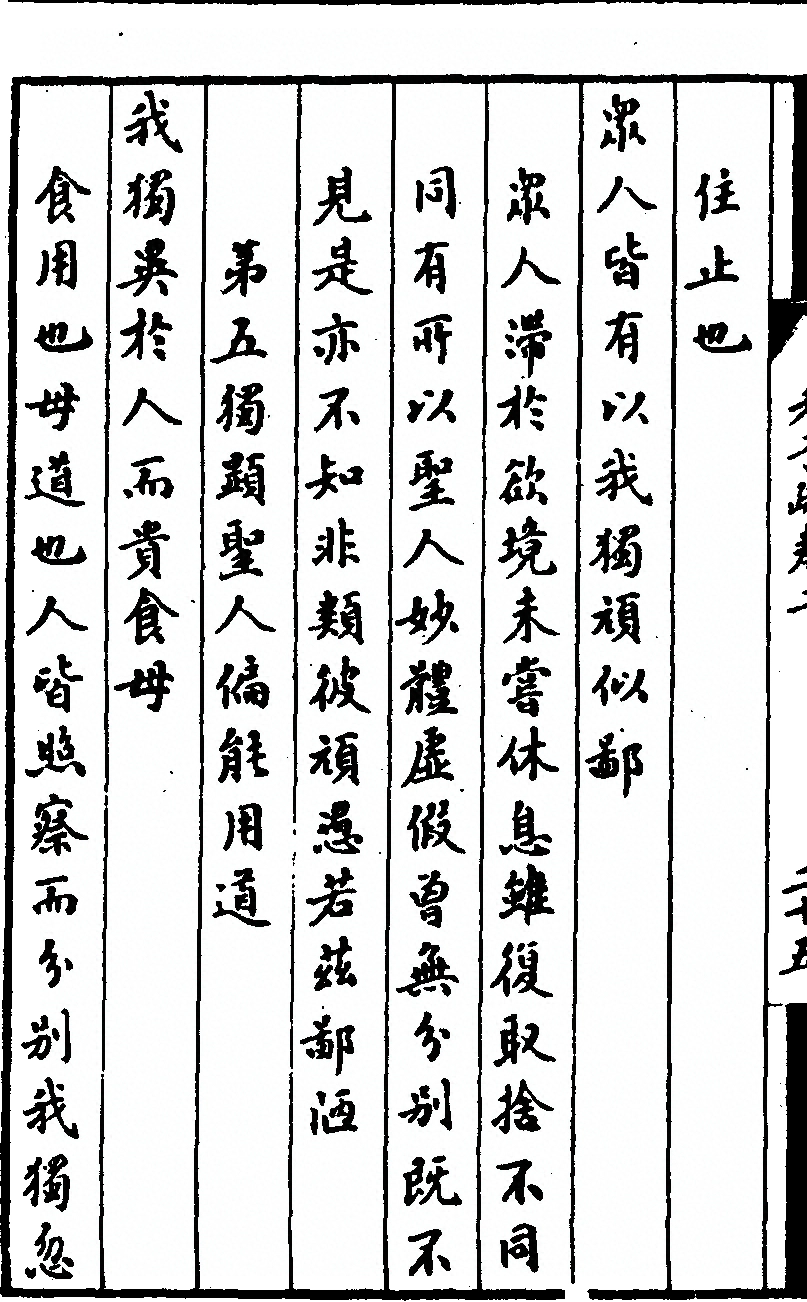 住止也
衆人皆有以我獨頑似鄙
衆人滞於欲境未嘗休息雖復取捨不同
同有所以聖人妙體虛假曾無分別既不
見是亦不知非類彼頑愚若茲鄙洒
第五獨顯聖人偏能用道
我獨異於人而貴食母
食用也母道也人皆照察而分別我獨忽